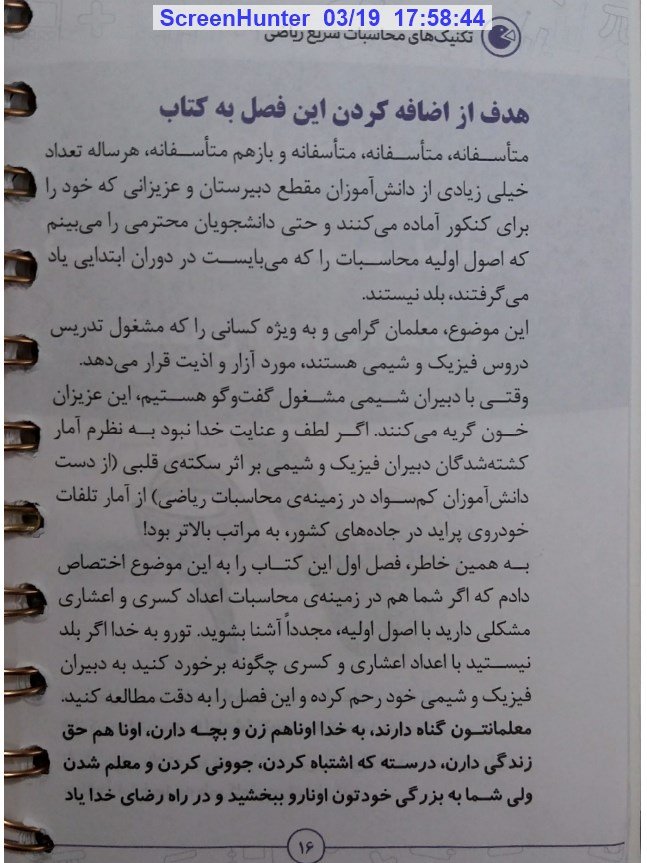 ScreenHunter 03/19 17:58:44
تکنیک‌های محاسبات سریع ریاضی
هدف از اضافه کردن این فصل به کتاب
متأسفانه، متأسفانه، متأسفانه و بازهم متأسفانه، هرساله تعداد
خیلی زیادی از دانش‌آموزان مقطع دبیرستان و عزیزانی که خود را
برای کنکور آماده می‌کنند و حتی دانشجویان محترمی را می‌بینم
که اصول اولیه محاسبات را که می‌بایست در دوران ابتدایی یاد
می‌گرفتند، بلد نیستند.
این موضوع، معلمان گرامی و به ویژه کسانی را که مشغول تدریس
دروس فیزیک و شیمی هستند، مورد آزار و اذیت قرار می‌دهد.
وقتی با دبیران شیمی مشغول گفت‌وگو هستیم، این عزیزان
خون گریه می‌کنند. اگر لطف و عنایت خدا نبود به نظرم آمار
کشته‌شدگان دبیران فیزیک و شیمی بر اثر سکته‌ی قلبی (از دست
دانش‌آموزان کم‌سواد در زمینه‌ی محاسبات ریاضی) از آمار تلفات
خودروی پراید در جاده‌های کشور، به مراتب بالاتر بود!
به همین خاطر، فصل اول این کتاب را به این موضوع اختصاص
دادم که اگر شما هم در زمینه‌ی محاسبات اعداد کسری و اعشاری
مشکلی دارید با اصول اولیه، مجدداً آشنا بشوید. تورو به خدا اگر بلد
نیستید با اعداد اعشاری و کسری چگونه برخورد کنید به دبیران
فیزیک و شیمی خود رحم کرده و این فصل را به دقت مطالعه کنید.
معلمانتون گناه دارند، به خدا اوناهم زن و بچه دارن، اونا هم حق
زندگی دارن، درسته که اشتباه کردن، جوونی کردن و معلم شدن
ولی شما به بزرگی خودتون اونارو ببخشید و در راه رضای خدا یاد
۱۶